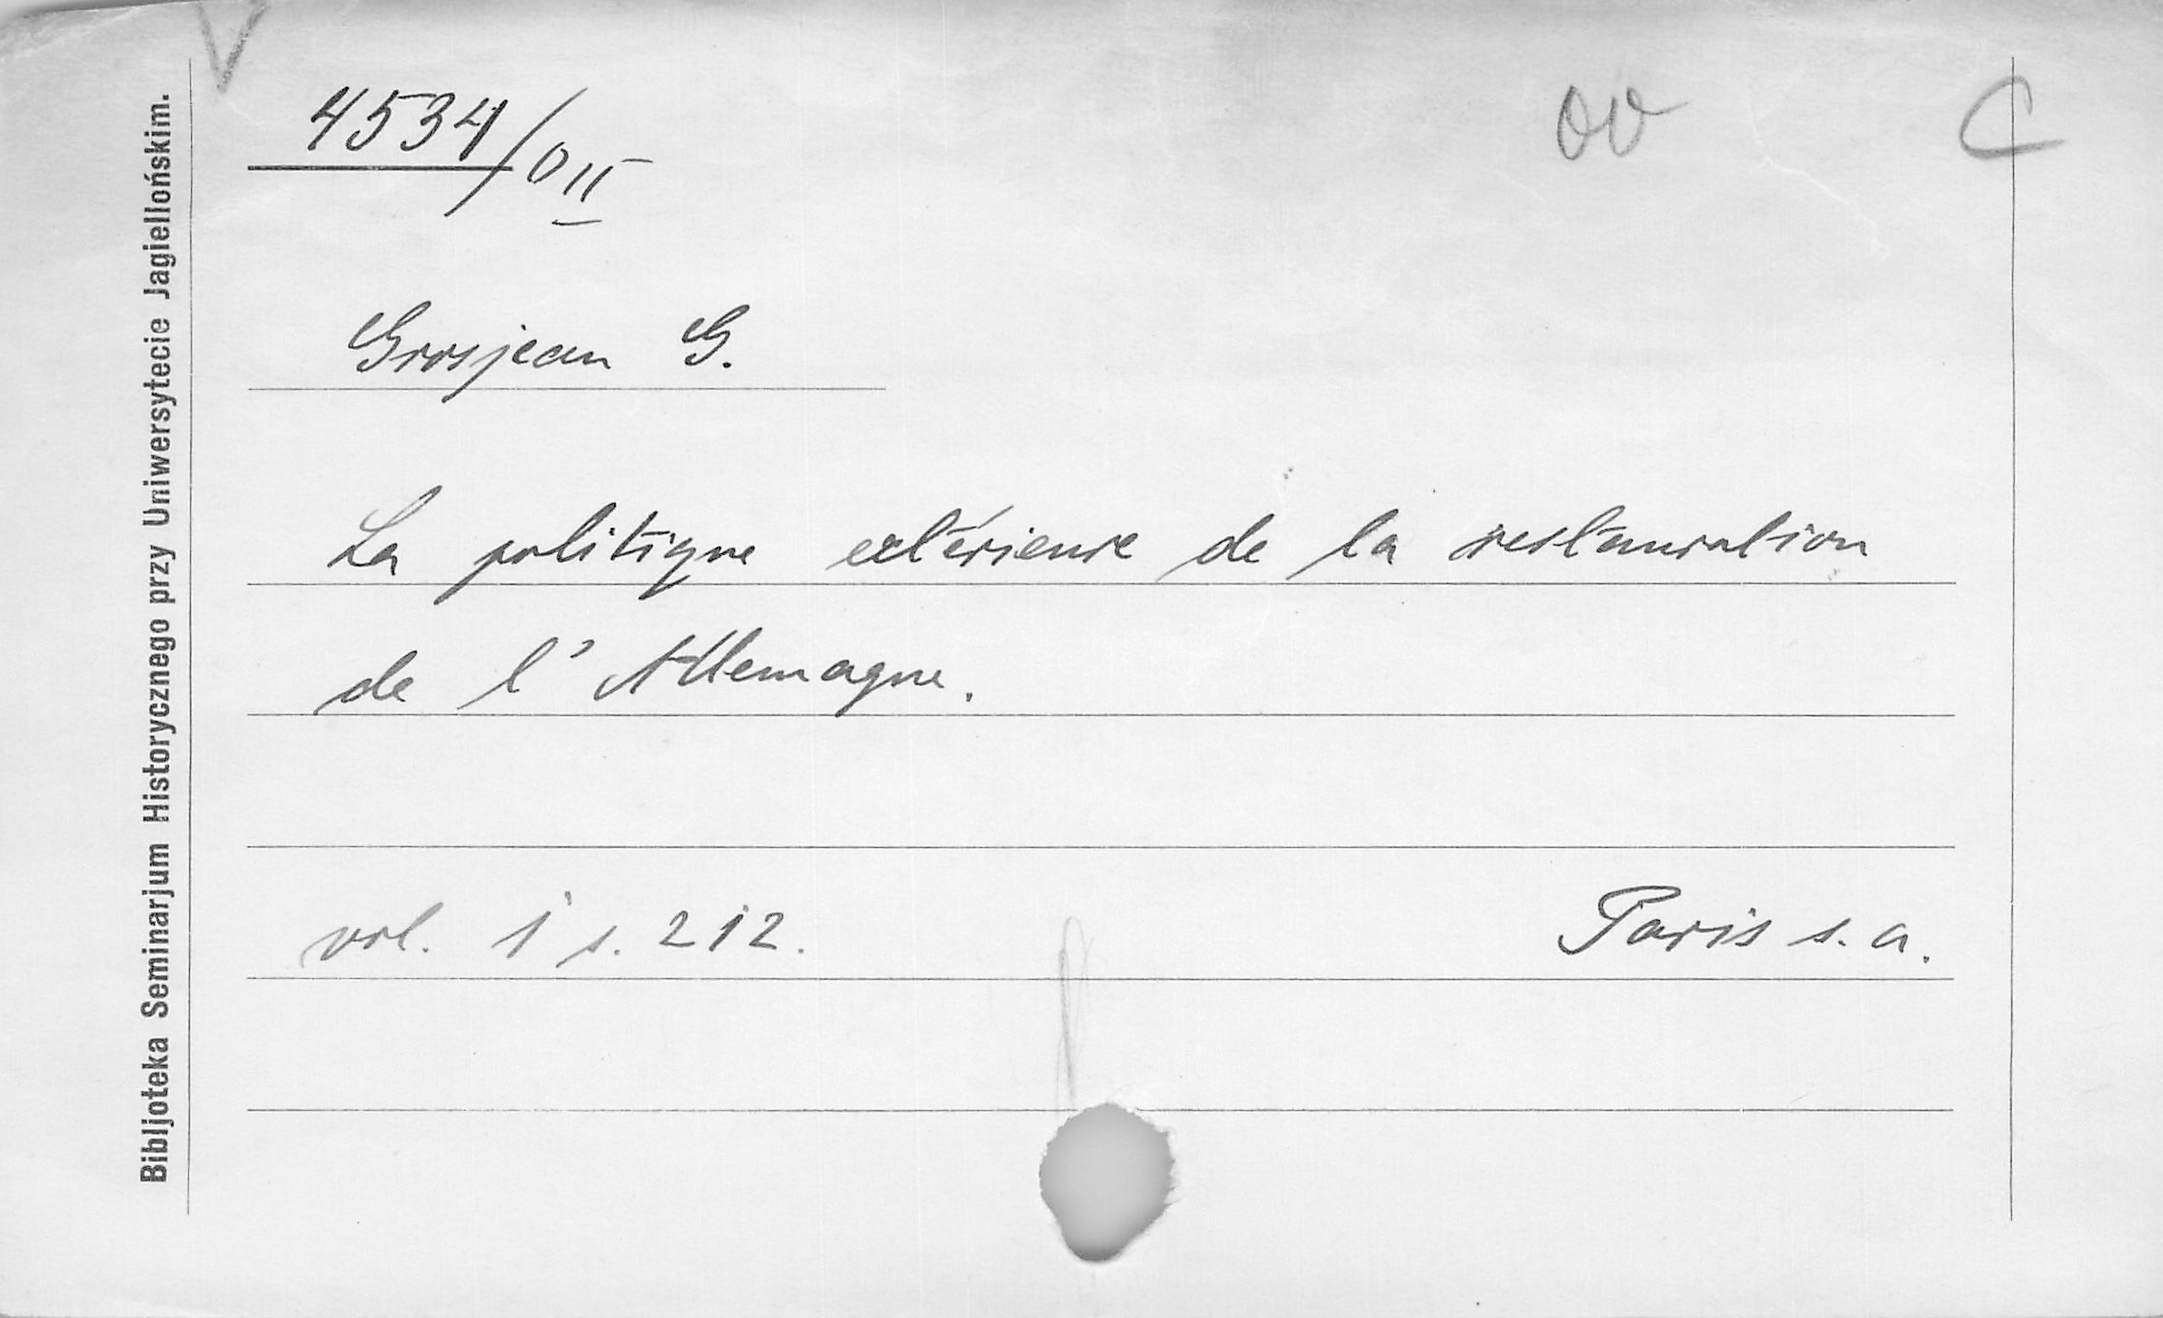 V
4534/O II
OV
C
Grosjean G.
La politique extérieure de la restauration
de l'Allemagne.
vol. 1 s. 212.
Paris s. a.
Bibljoteka Seminarjum Historycznego przy Uniwersytecie Jagiellońskim.